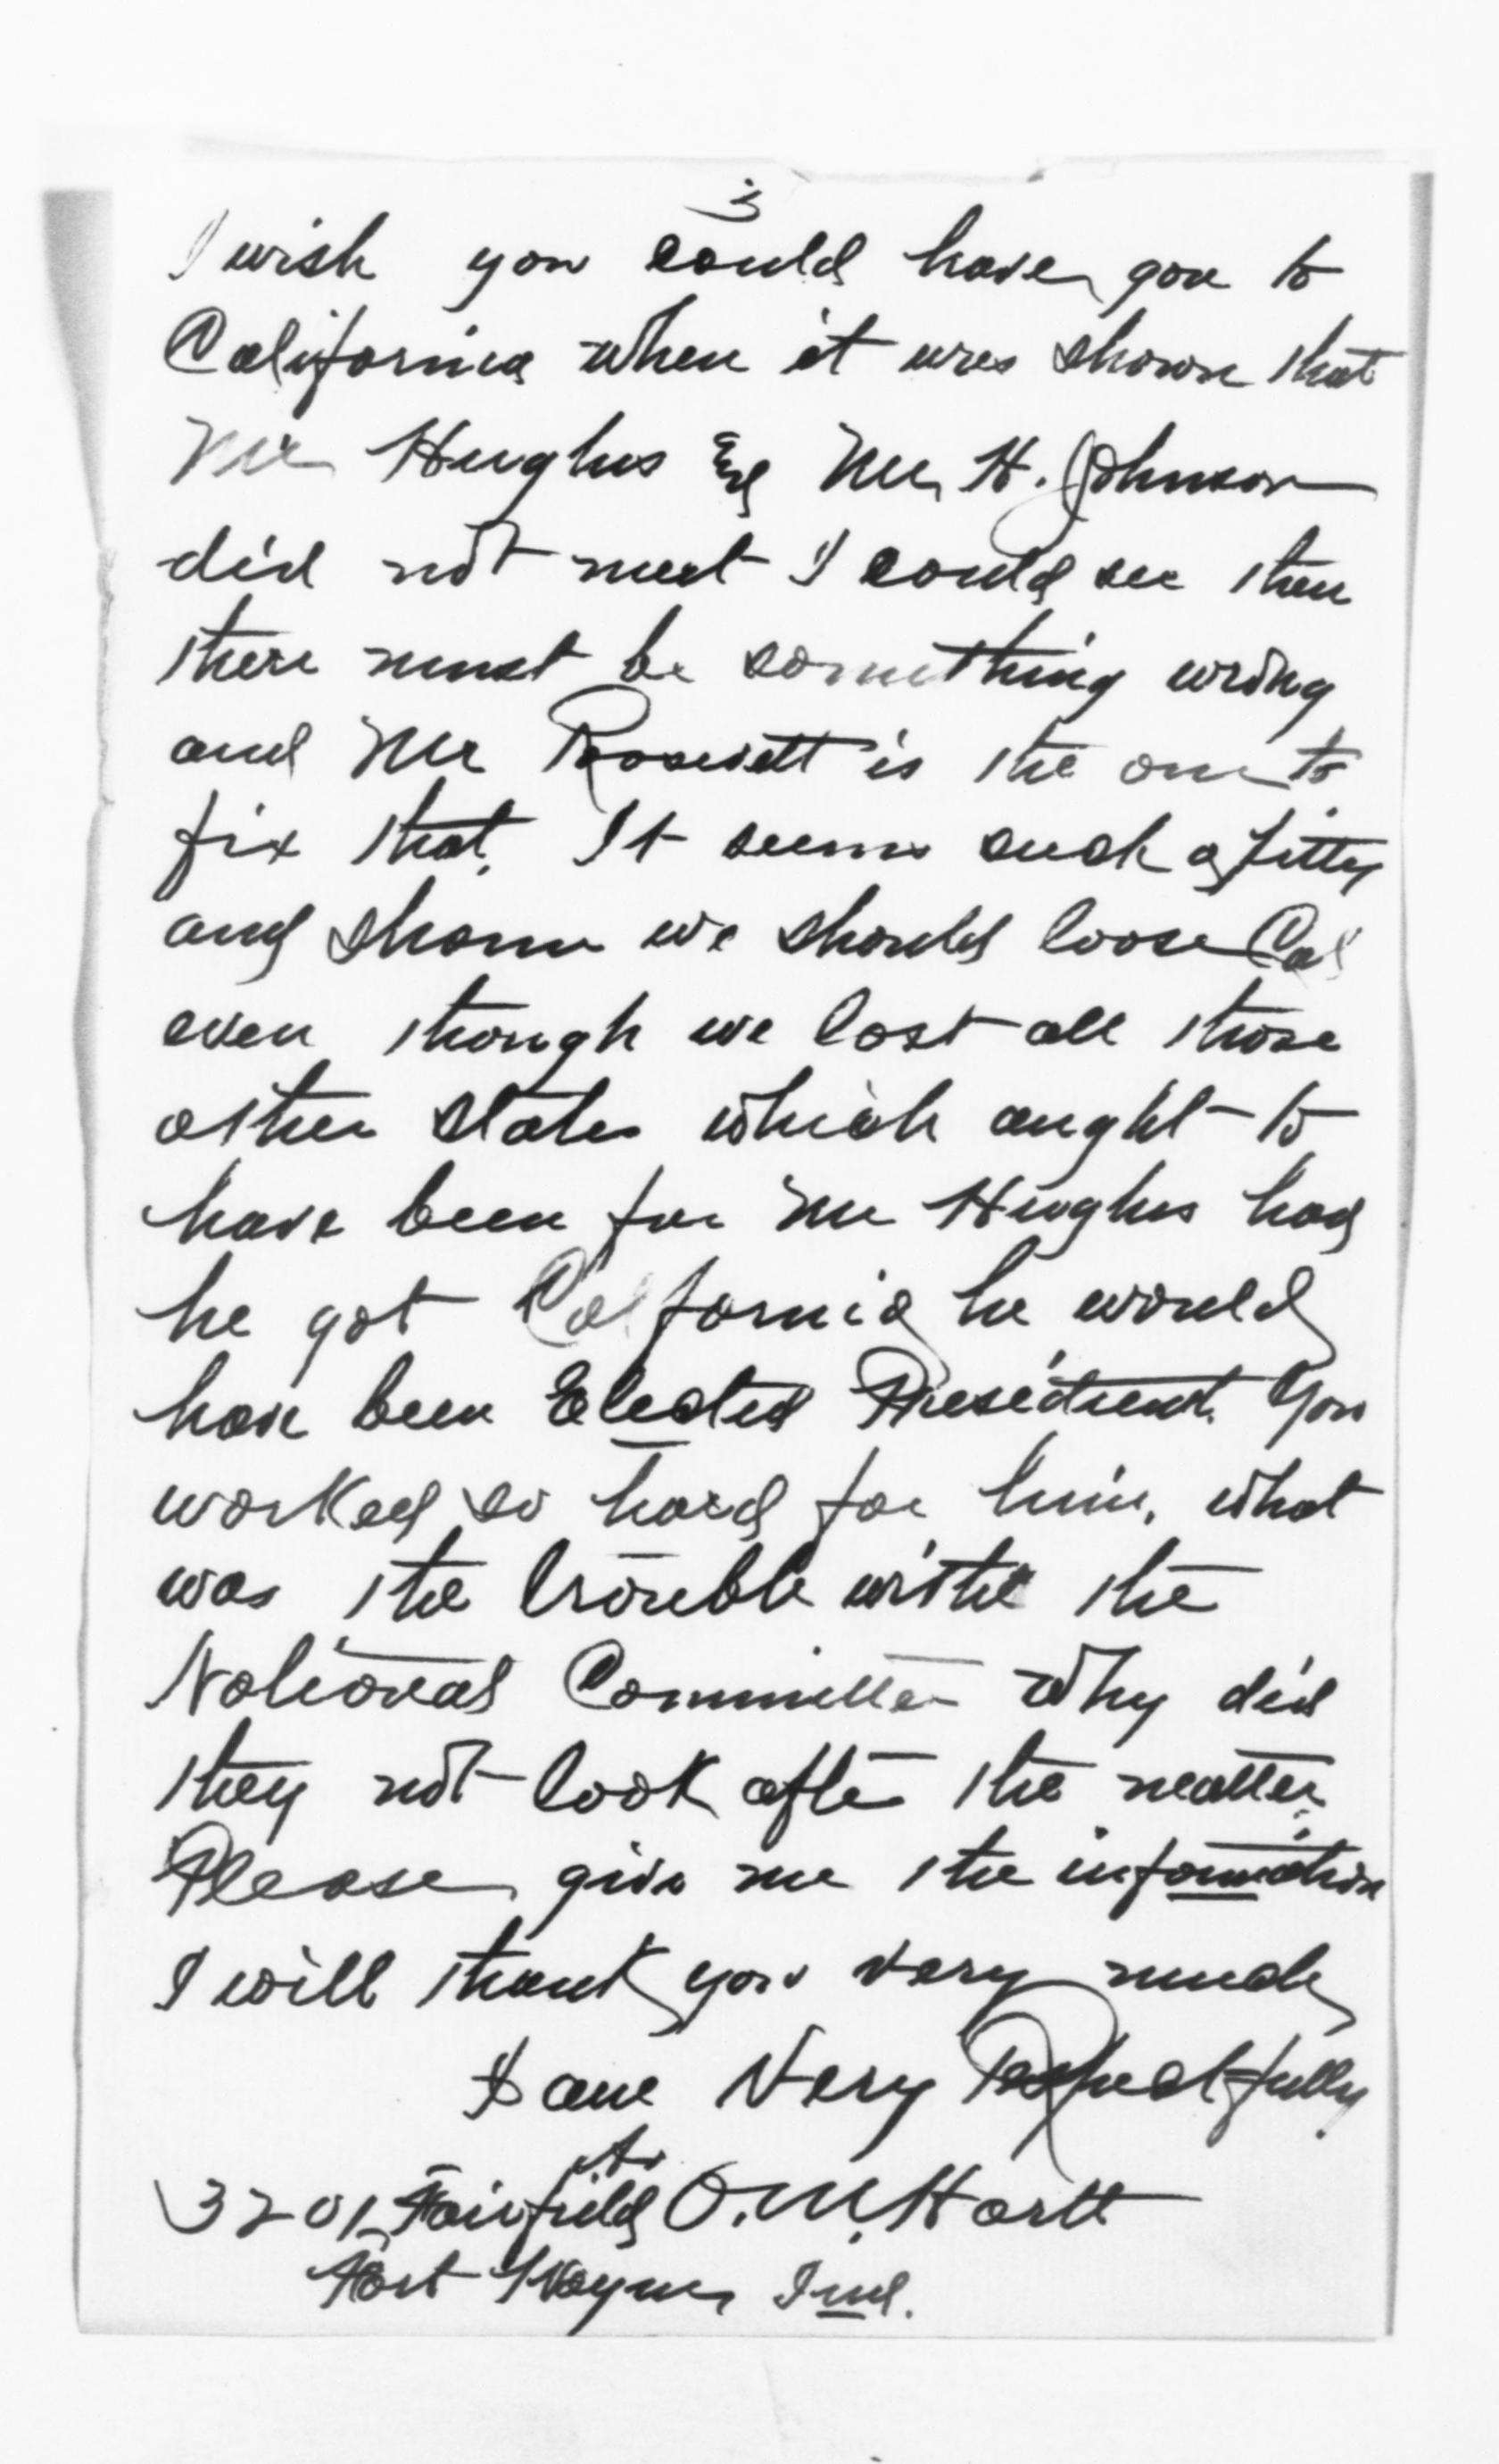 3
I wish you could have gon to
California when it was shown that
Mr Hughes & Mr H. Johnson
did not meet I could see then
there must be something wrong
and Mr Roosevelt is the one to
fix that. It seems such a pitty
and shame we should loose Cal
even though we lost all those
other states which aught to
have been for Mr Hughes had
he got California he would
have been Elected President. You
worked so hard for him. what
was the trouble with the
National Committee Why did
they not look after the matter.
Please give me the information
I will thank you very much
I am Very Respectfully
3201 Fairfield Av O. W. Hartt
Fort Wayne, Ind.